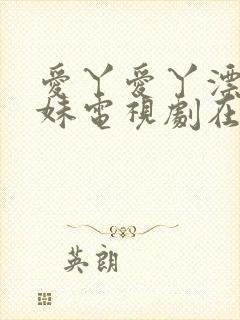 愛丫愛丫漂
妹電視劇在
英朗